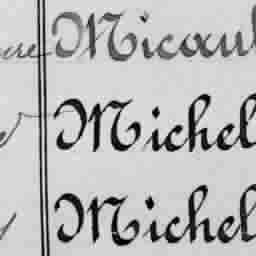 Micoul
Michel
Michel